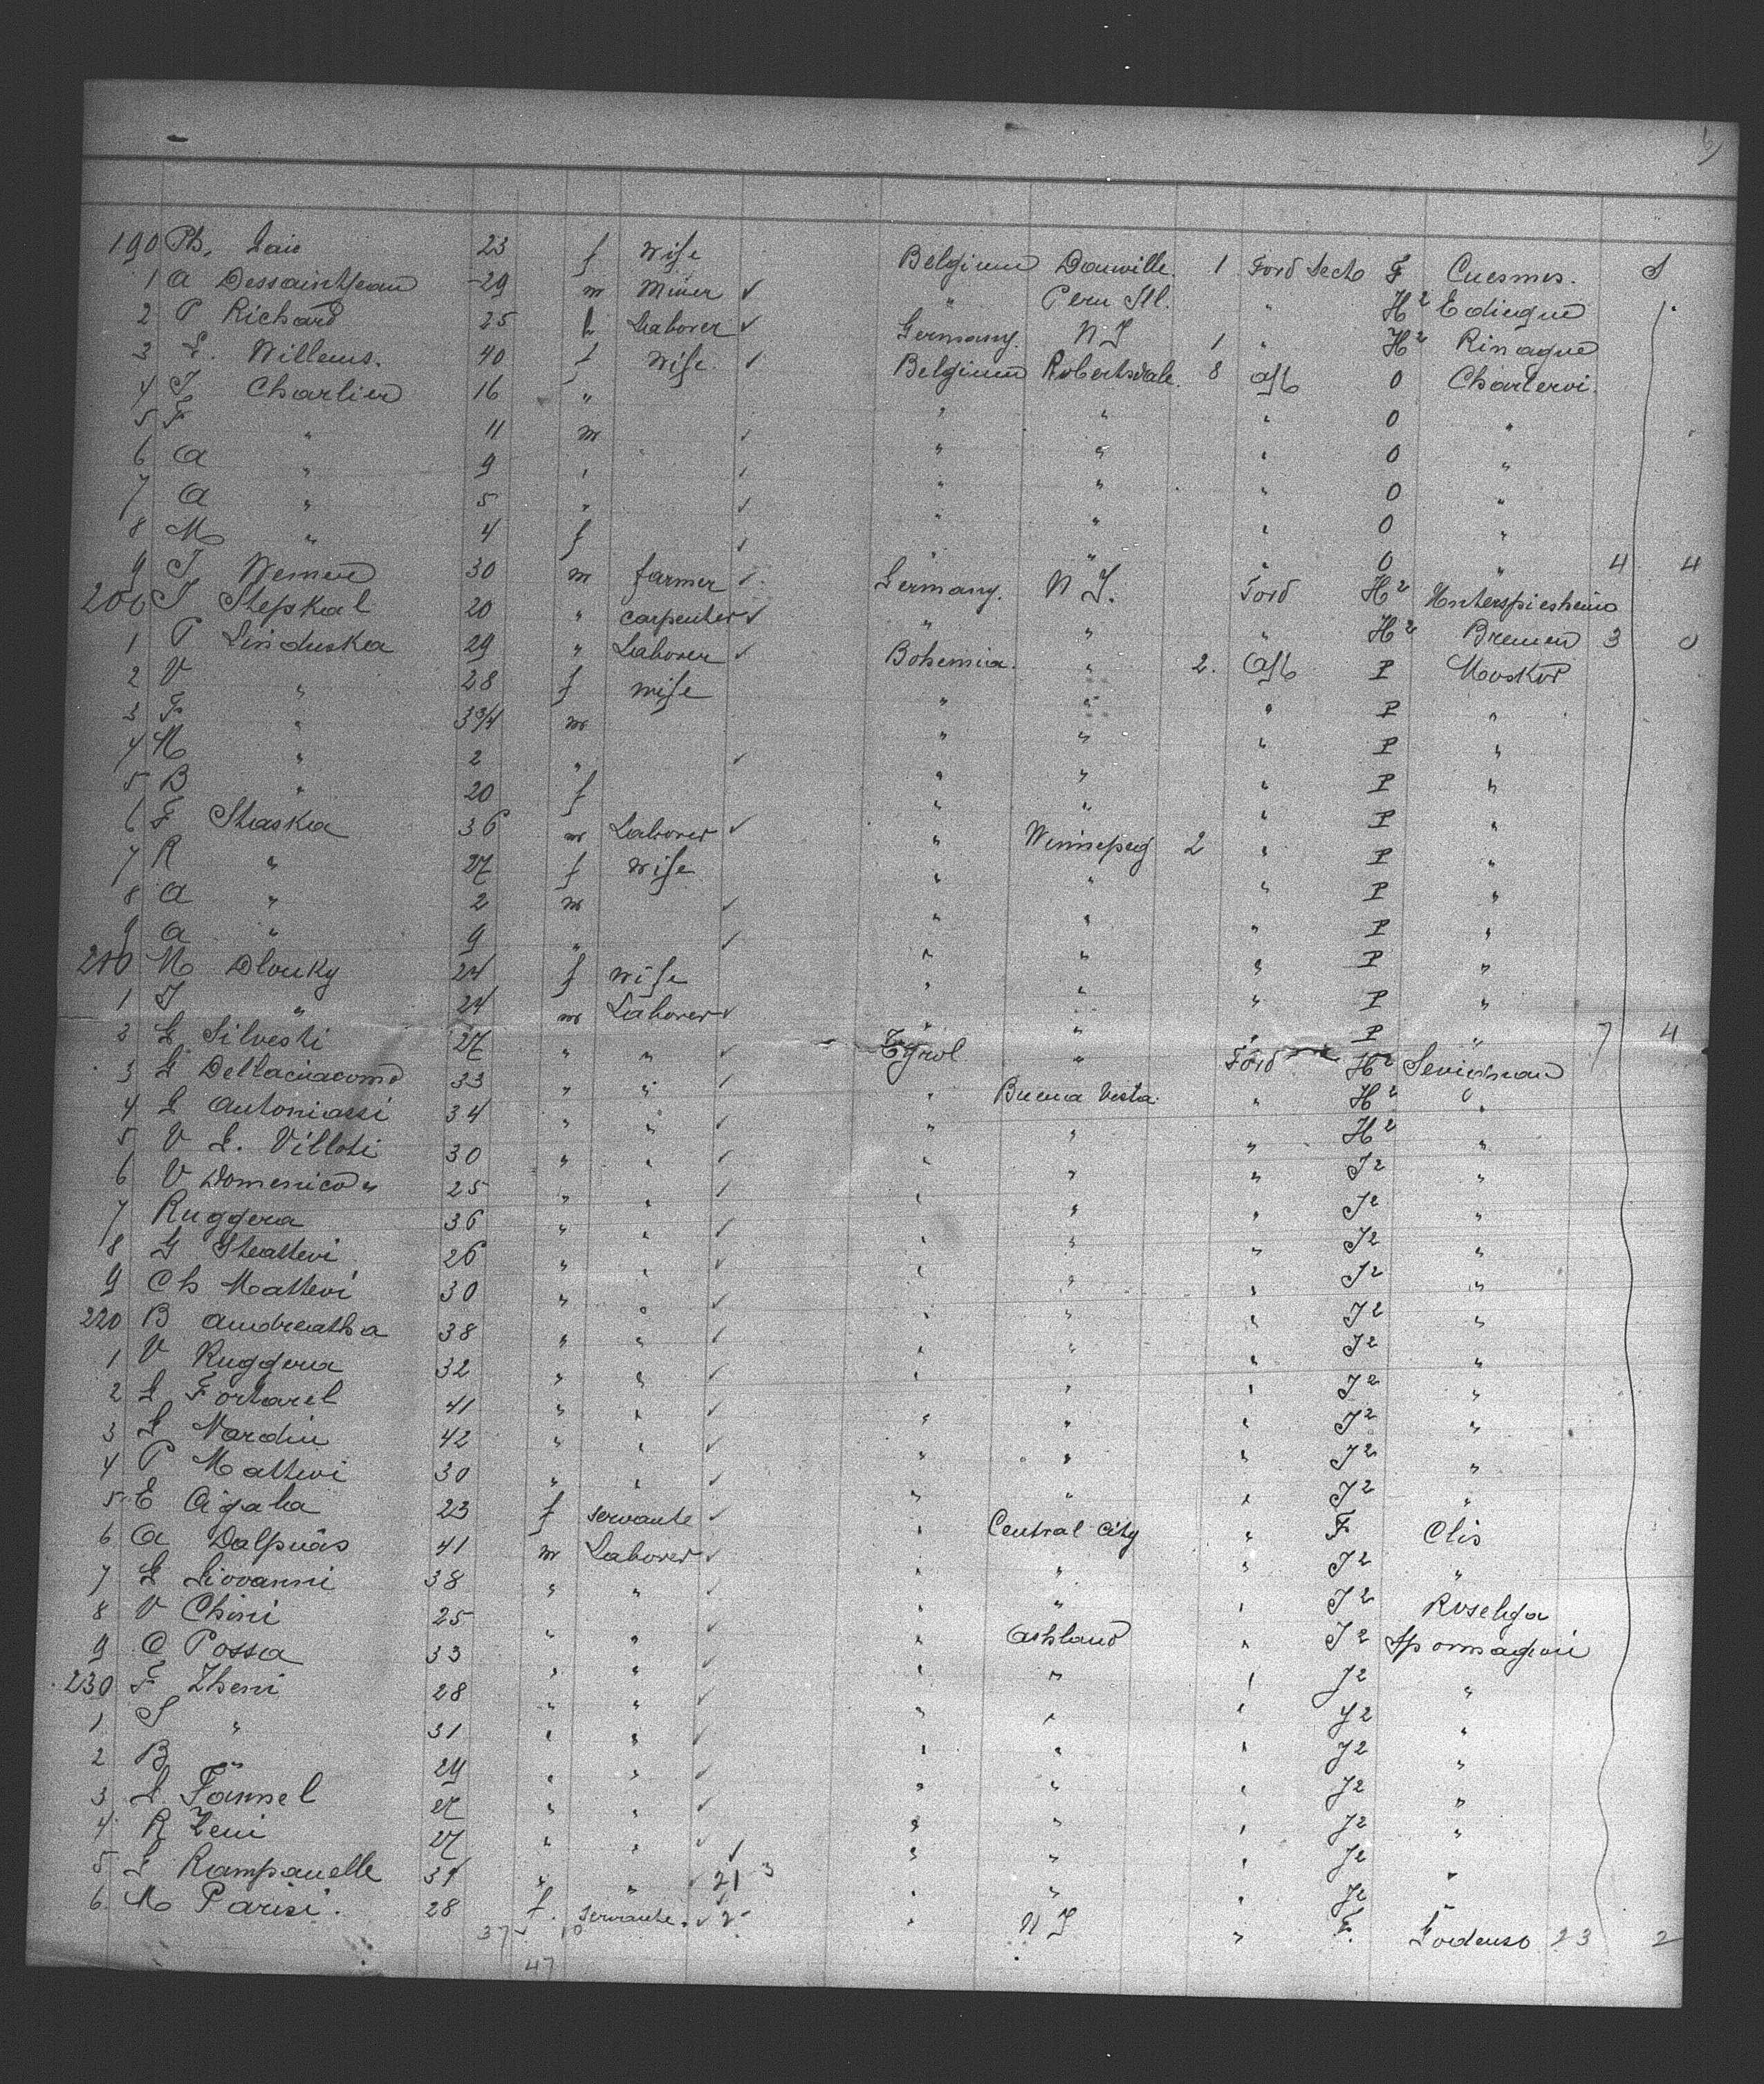 190 Ph. Laie 23 f wife Belgium Donville. 1 Ford Deck F Cuesmes. S
1 A Dessaintjean 29 m Miner ✓ " Peru Ill. " H2 Edingue 1.
2 P Richard 25 Laborer ✓ Germany. N J 1 " H2 Rinague
3 L. Willems. 40 f wife. ✓ Belgium Robertsdale. 8 Aft O Charlervi.
4 J Charlier 16 " " " " O "
5 F " 11 m ✓ " " " O "
6 A " 9 " ✓ " " " O "
7 A " 5 " ✓ " " " O "
8 M " 4 f ✓ " " " O " 4 4
9 J Wemer 30 m farmer ✓ Germany. N J. Ford H2 Unterspiesheim
200 J Stepkal 20 " carpenter ✓ " " " H2 Bremen 3 0
1 P Linduska 29 " Laborer ✓ Bohemia. " 2. Aft P Moskov
2 V " 28 f wife " " " P "
3 F " 3 3/4 m " " " P "
4 M " 2 " ✓ " " " P "
5 B " 20 f " " " P "
6 F Staska 36 m Laborer ✓ " Winnepeg 2 " P "
7 R " 27 f wife " " " P "
8 A " 2 m ✓ " " " P "
9 A " 9 " ✓ " " " P "
210 M Dlouky 24 f wife " " " P "
1 J " 24 m Laborer ✓ " " " P " 7 4
2 G Silvesti 27 " " ✓ Tyrol " Ford H2
3 G Dellaciacomo 33 " " ✓ " Buena Vista " H2 "
4 G Antoniassi 34 " " ✓ " " " H2 "
5 V L. Villoti 30 " " ✓ " " " J2 "
6 V Domenico " 25 " " ✓ " " " J2 "
7 Ruggera 36 " " ✓ " " " J2 "
8 G Steattevi 26 " " ✓ " " " J2 "
9 Ch Mattevi 30 " " ✓ " " " J2 "
220 B Andreatha 38 " " ✓ " " " J2 "
1 V Ruggera 32 " " ✓ " " " J2 "
2 L Fortarel 41 " " ✓ " " " J2 "
3 L Nardin 42 " " ✓ " " " J2 "
4 P Mattevi 30 " " ✓ " " " J2 "
5 E Agata 23 f servante ✓ " Central City " F Clis
6 A Dalpuas 41 m Laborer ✓ " " " J2 "
7 G Giovanni 38 " " ✓ " " " J2 Roselga
8 V Chini 25 " " ✓ " Ashland " J2 Spormagiori
9 C Possa 33 " " ✓ " " " J2 "
230 F Zheni 28 " " ✓ " " " J2 "
1 S " 31 " " ✓ " " " J2 "
2 B " 29 " " ✓ " " " J2 "
3 L. Fannel 27 " " ✓ " " " J2 "
4 R Zeni 27 " " ✓ " " " J2 "
5 L Rampanelle 31 " " ✓ 21 3 " " " J2 "
6 M Parisi. 28 f. servante. ✓ 2 " N J " F. Gordenso 23 2
37 10
47